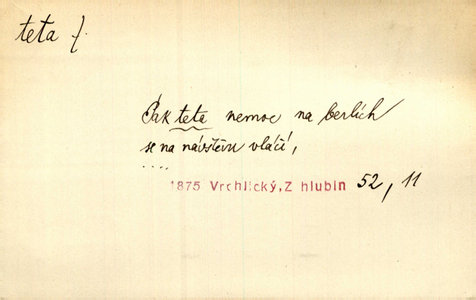 teta f.
Pak teta nemoc na berlích
se na návštěvu vláčí,
....
1875 Vrchlický, Z hlubin 52, 11